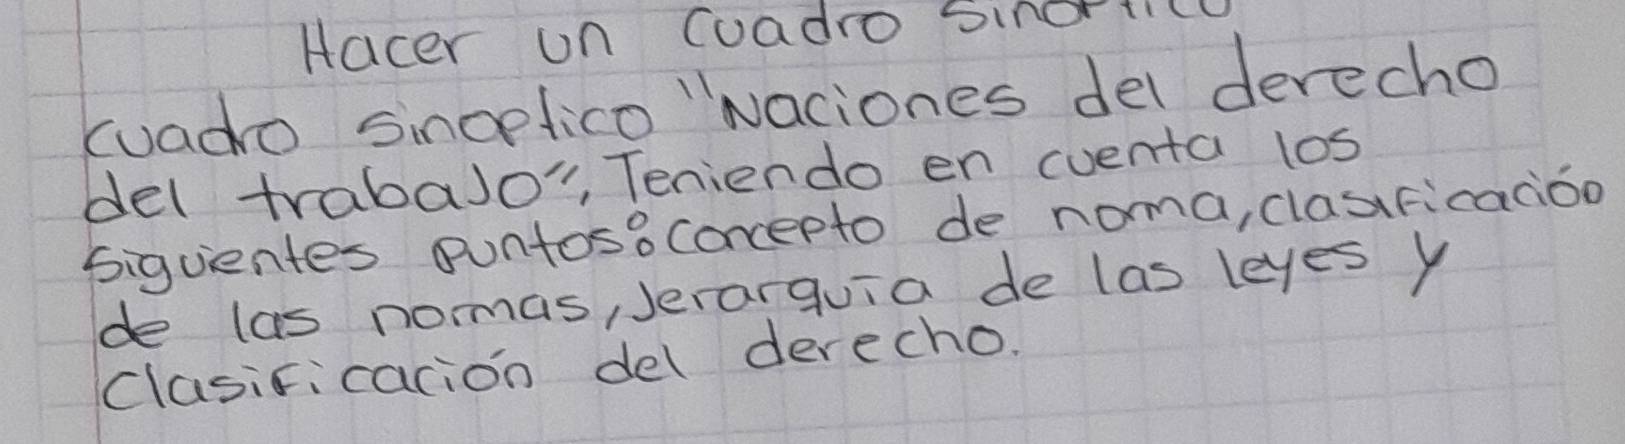 Hacer un cuadro sinoptico
cuadro sinoptico "Naciones del derecho
del trabaJo", Teniendo en cuenta los
siguientes puntos: concepto de noma, clasificación
de las nomas, Jerarquia de las leyes y
clasificación del derecho.